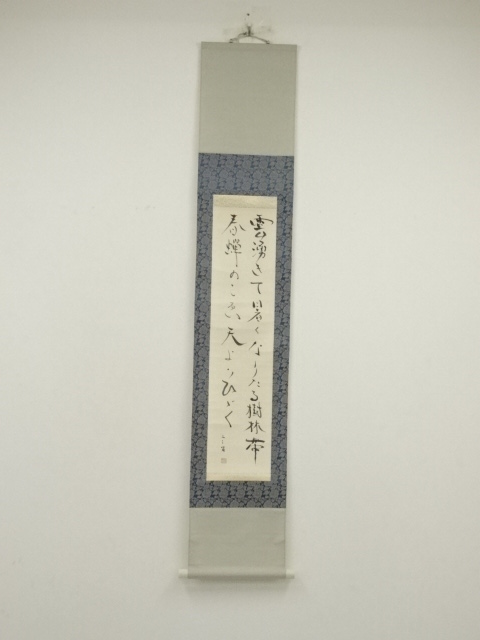 雲湧きて暑くなりたる樹林帯
春蝉のこゑ天よりひゞく